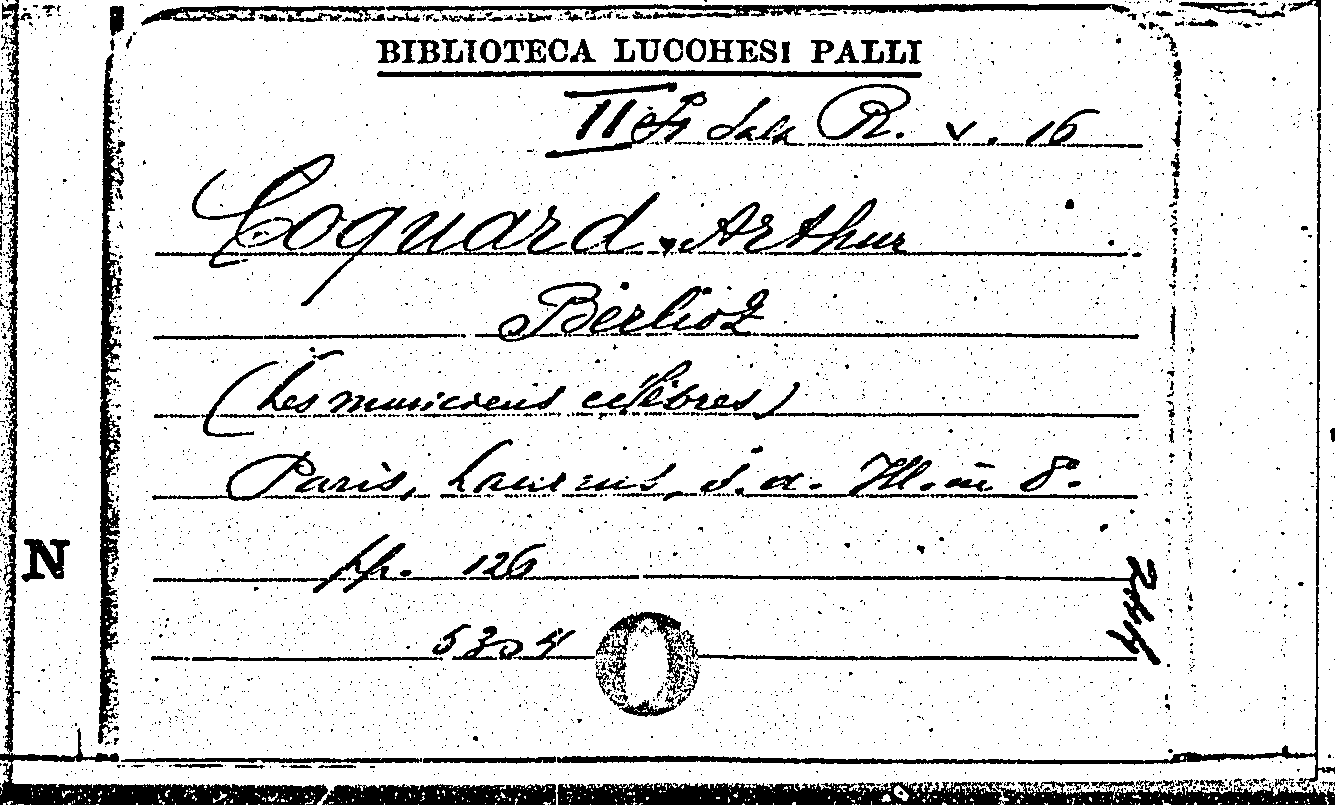 BIBLIOTECA LUCCHESI PALLI
II Sala R. v. 16
Coquard, Arthur
Berlioz
(Les musiciens célèbres)
Paris, Laurens, s.a. Ill. in 8°.
pp. 126
5304
N